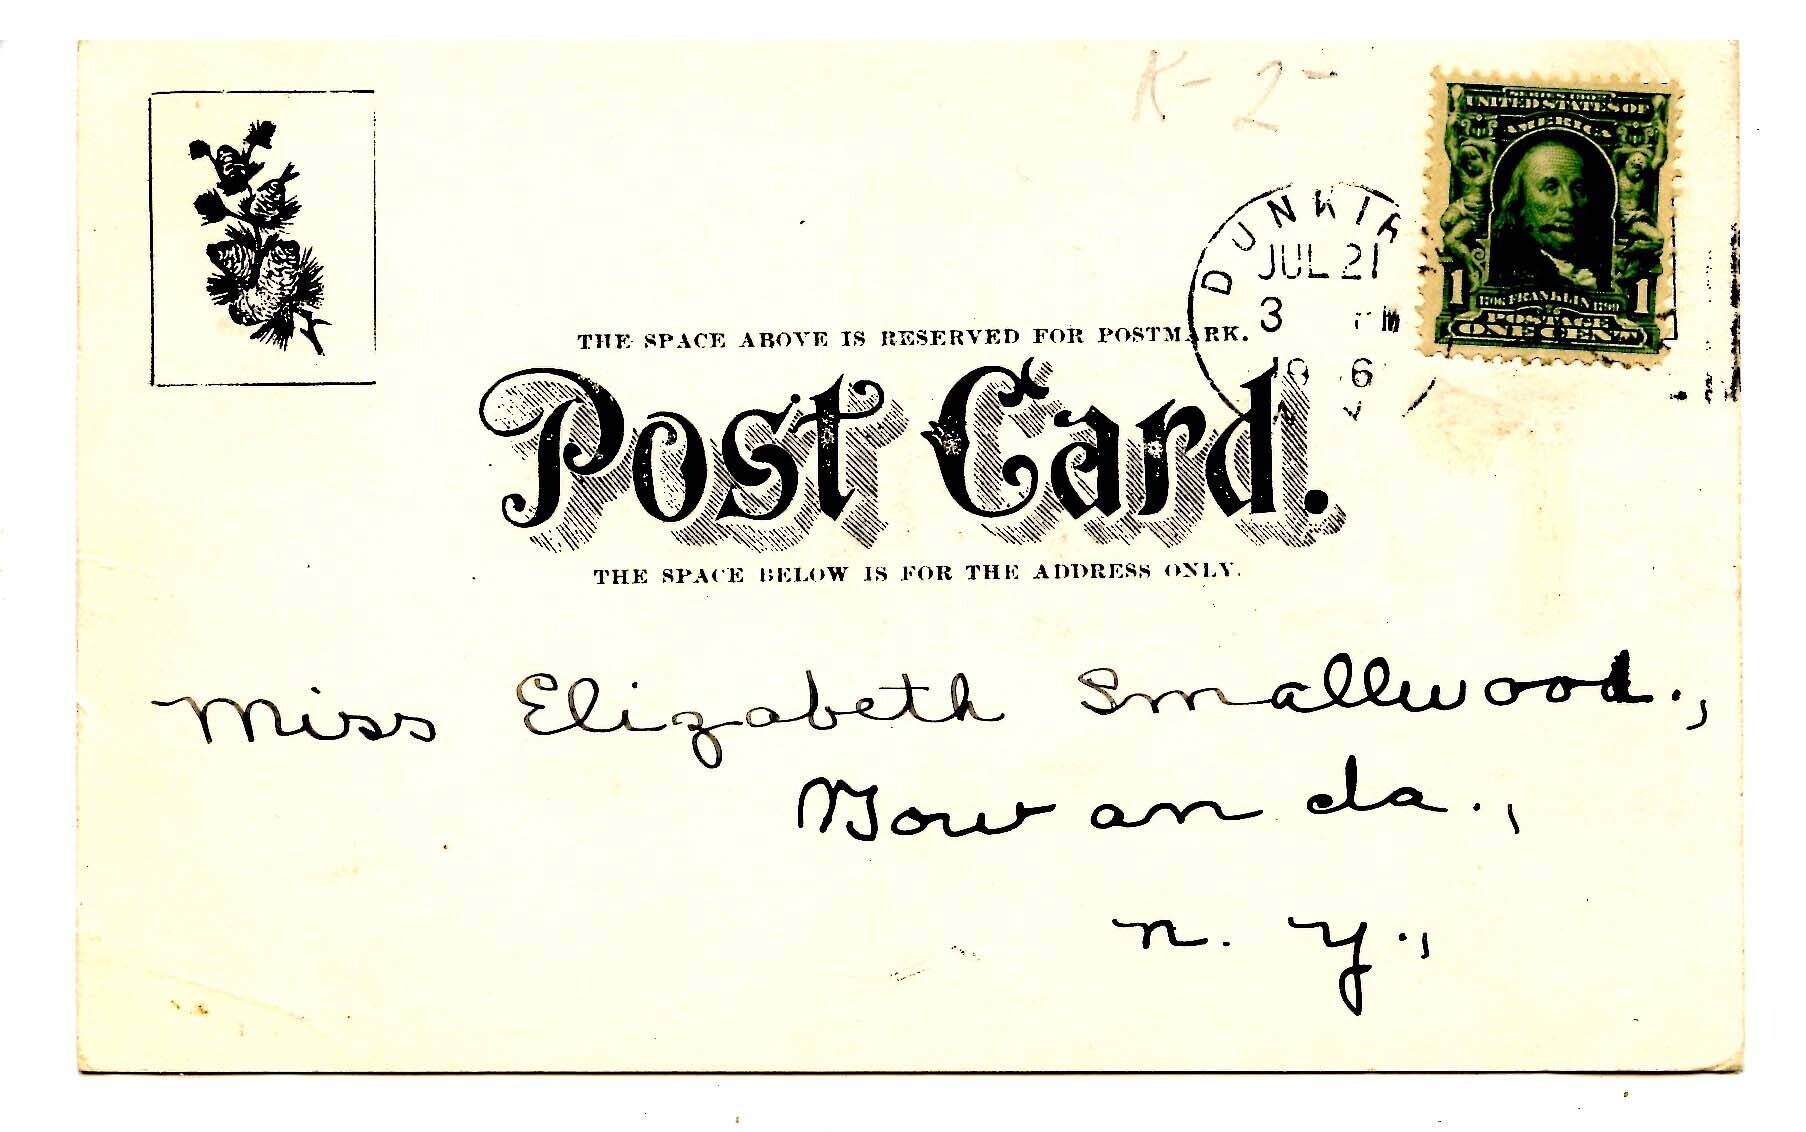 K-2-
SERIES 1902
UNITED STATES OF
AMERICA
1 1706 FRANKLIN 1790 1
POSTAGE
ONE CENT
DUNKIR
JUL 21
3 PM
6
THE SPACE ABOVE IS RESERVED FOR POSTMARK.
Post Card.
THE SPACE BELOW IS FOR THE ADDRESS ONLY.
Miss Elizabeth Smallwood.,
Gowanda.,
N. Y.,